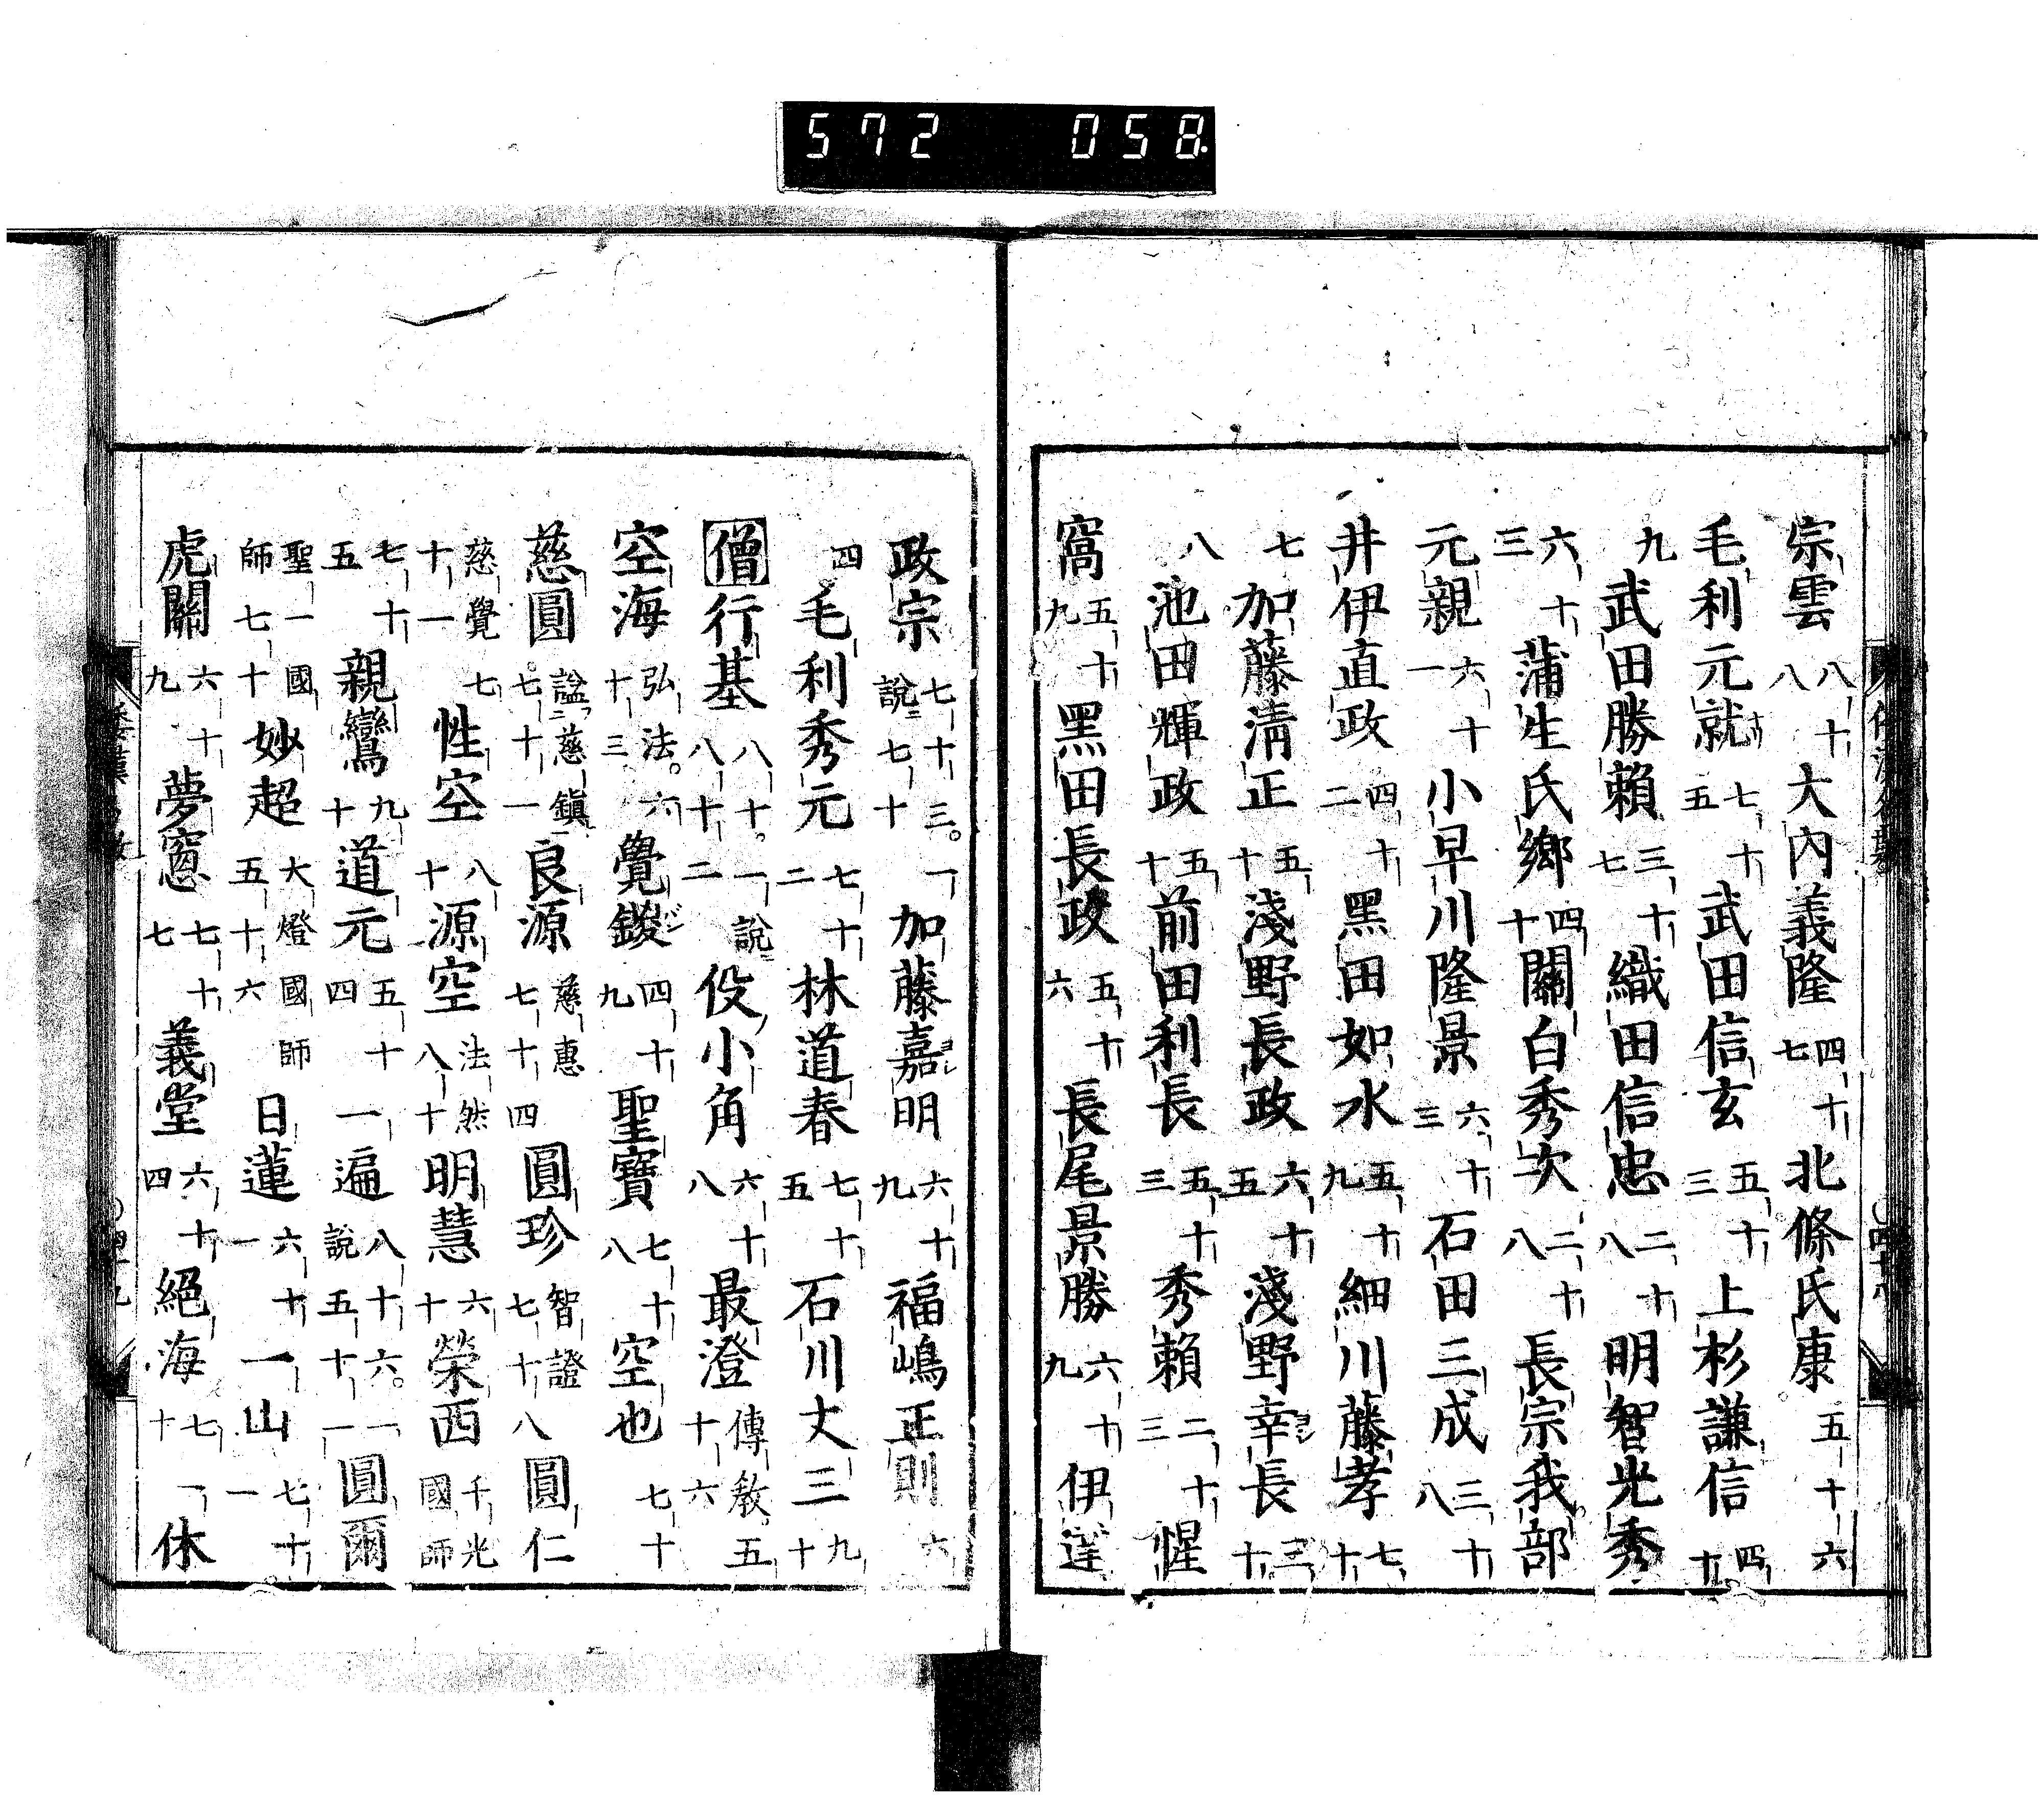 572 058
宗雲 八十八 大內義隆 四十七 北條氏康 五十六
毛利元就 七十五 武田信玄 五十三 上杉謙信 四十
九 武田勝賴 三十七 織田信忠 二十八 明智光秀
六十三 蒲生氏鄉 四十 關白秀次 二十八 長宗我部
元親 六十一 小早川隆景 六十三 石田三成 三十八
井伊直政 四十二 黑田如水 五十九 細川藤孝 七十
七 加藤淸正 五十 淺野長政 六十五 淺野幸長 三十
八 池田輝政 五十 前田利長 五十三 秀賴 二十三 惺
窩 五十九 黑田長政 五十六 長尾景勝 六十九 伊達
政宗 七十三。一說ニ七十 加藤嘉明 六十九 福嶋正則 六
四 毛利秀元 七十二 林道春 七十五 石川丈三 九十
僧 行基 八十。一說ニ八十二 役小角 六十八 最澄 傳敎 五十六
空海 弘法。六十三 覺鑁 四十九 聖寶 七十八 空也 七十
慈圓 諡ニ慈鎭 七十一 良源 慈惠 七十四 圓珍 智證 七十八 圓仁
慈覺 七十一 性空 八十 源空 法然 八十 明慧 六十 榮西 千光國師
七十五 親鸞 九十 道元 五十四 一遍 八十六。一說五十一 圓爾
聖一國師 七十 妙超 大燈國師 五十六 日蓮 六十一 一山 七十一
虎關 六十九 夢窓 七十七 義堂 六十四 絕海 七十 一休